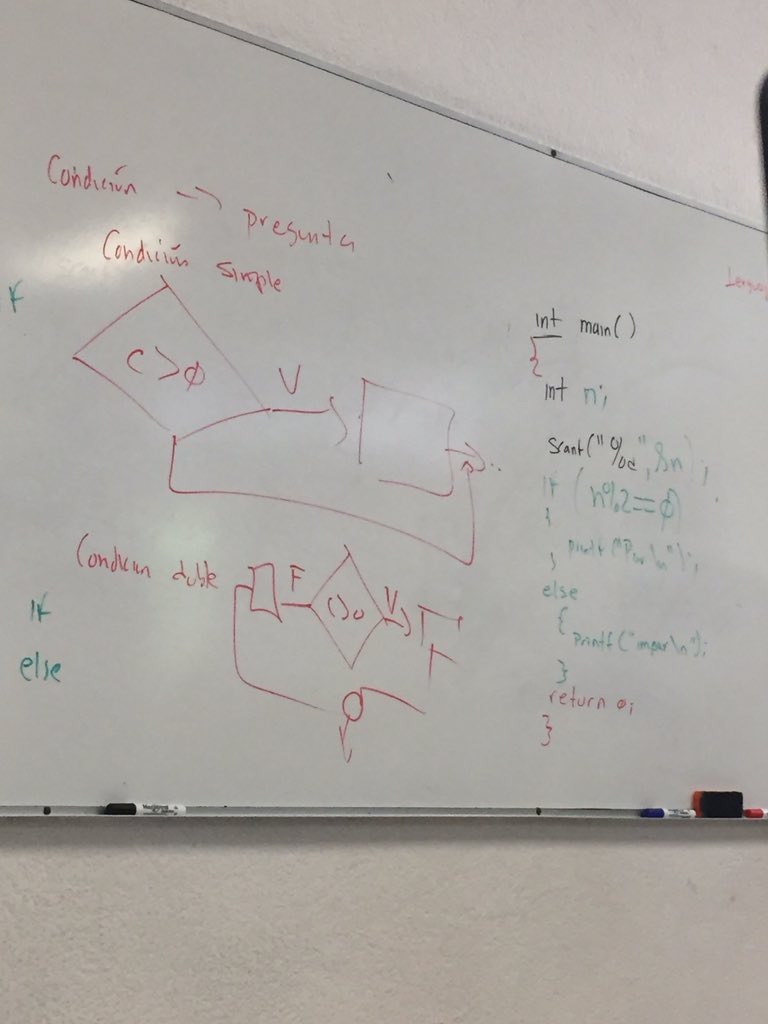 Condición --> pregunta
Condición simple
if
C>0
V
Condicion doble
F
V
if
else
int main()
{
int n;
scanf("%d",&n);
if (n%2==0)
{
printf("Par\n");
}
else
{
printf("impar\n");
}
return 0;
}